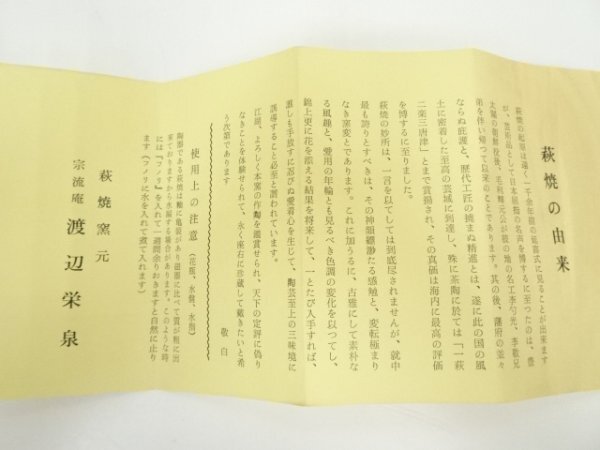 萩焼の由来
萩焼の起原は遠く一千余年後の延喜式に見ることが出来ます
が、芸術品として日本屈指の名声を博するに至つたのは、豊
太閤の朝鮮役後、毛利輝元公が彼の地の名工李勺光、李敬兄
弟を伴い帰つて以来のことであります。其の後、藩府の並々
ならぬ庇護と、歴代工匠の撓まぬ精進とは、遂に此の国の風
土に密着した至高の芸域に到達し、殊に茶陶に於ては「一萩
二楽三唐津」とまで賞揚され、その真価は海内に最高の評価
を博するに至りました。
萩焼の妙所は、一言を以てしては到底尽されませんが、就中
最も誇りとすべきは、その神韻縹渺たる感触と、変転極まり
なき窯変とであります。これに加うるに、古雅にして素朴な
る風趣と、愛用の年輪とも見るべき色調の変化を以つてし、
錦上更に花を添える結果を将来して、一とたび入手すれば、
誰しも手放すに忍びぬ愛着心を生じて、陶芸至上の三昧境に
誘導すること必至と謂われています。
江湖、よろしく本窯の作陶を鑑賞せられ、天下の定評に偽り
なきことを体験せられて、永く座右に珍蔵して戴きたいと希
う次第であります
敬白
使用上の注意（花瓶、水盤、水指）
陶器である萩焼は釉に亀裂があり磁器に比べて質が粗に出
来ておりますから水漏する場合があります。このような時
には『フノリ』を入れて一週間余りおきますと自然に止り
ます（フノリに水を入れて煮て入れます）
萩焼窯元
宗流庵 渡辺栄泉